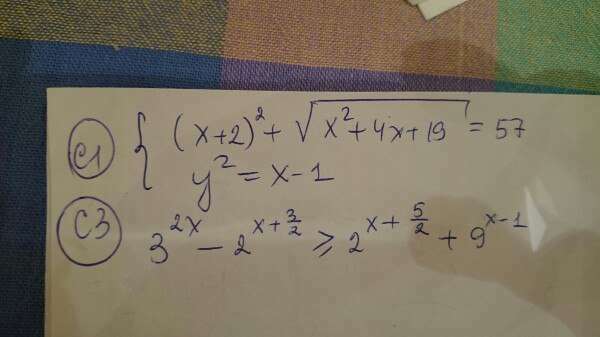 C1 { (x+2)² + √(x²+4x+19) = 57
y² = x-1
C3 3^(2x) - 2^(x+3/2) ⩾ 2^(x+5/2) + 9^(x-1)